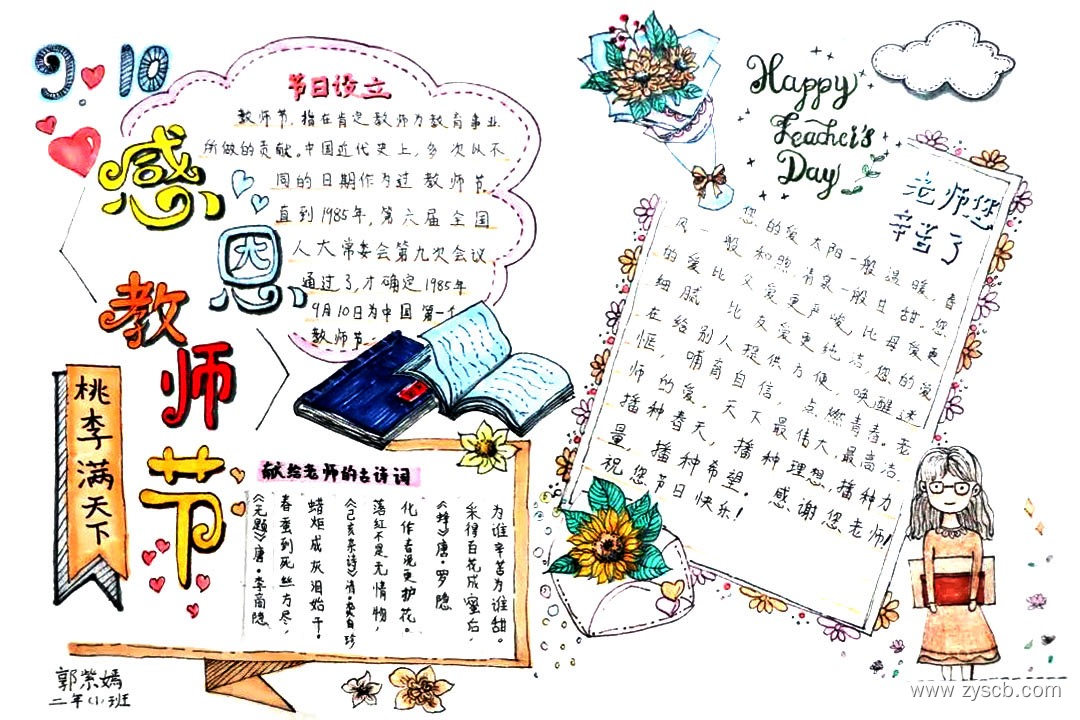 9.10
感恩
教师节
桃李满天下
节日设立
教师节，指在肯定教师为教育事业
所做的贡献。中国近代史上，多次以不
同的日期作为过教师节
直到1985年，第六届全国
人大常委会第九次会议
通过了，才确定1985年
9月10日为中国第一个
教师节
献给老师的古诗词
《无题》唐·李商隐
春蚕到死丝方尽，
蜡炬成灰泪始干。
《己亥杂诗》清·龚自珍
落红不是无情物，
化作春泥更护花。
《蜂》唐·罗隐
采得百花成蜜后，
为谁辛苦为谁甜。
郭紫嫣
二年(1)班
Happy
Teacher's
Day
老师您
辛苦了
您的爱太阳一般温暖，春
风一般和煦，清泉一般甘甜。您
的爱比父爱更严峻，比母爱更
细腻，比友爱更纯洁。您的爱
在给别人提供方便，唤醒迷
惘，哺育自信，点燃青春。老
师的爱，天下最伟大，最高洁。
播种春天，播种理想，播种力
量，播种希望。感谢您老师！
祝您节日快乐！
www.zyscb.com